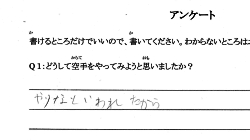 アンケート
書けるところだけでいいので、書いてください。わからないところは
Q1:どうして空手をやってみようと思いましたか?
やりなといわれたから